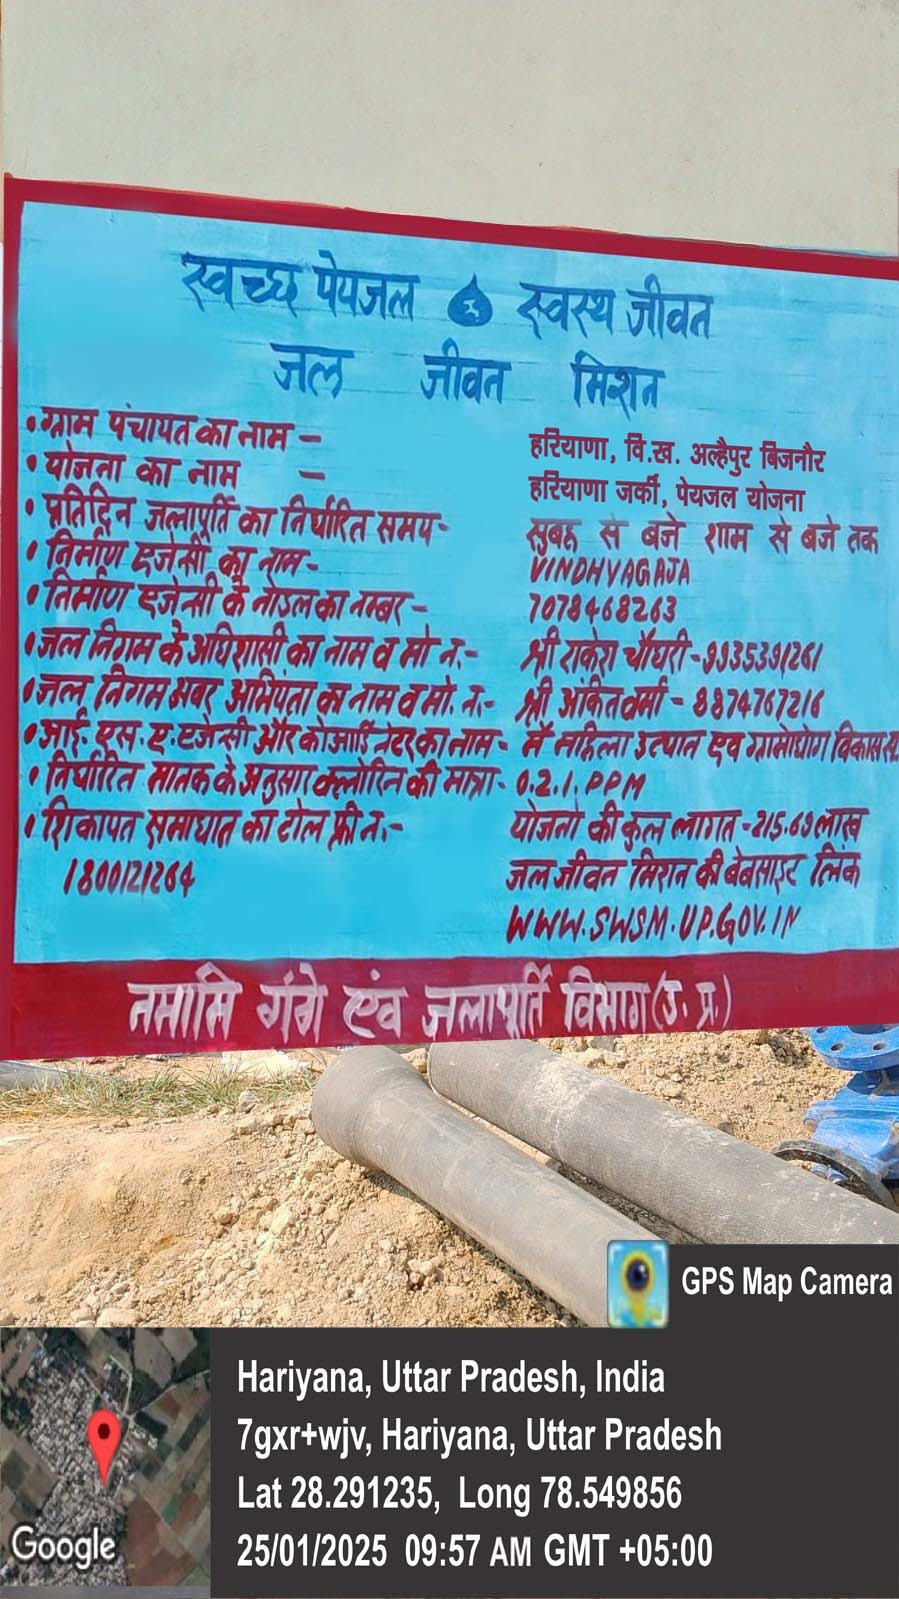 स्वच्छ पेयजल स्वस्थ जीवन
जल जीवन मिशन
• ग्राम पंचायत का नाम – हरियाणा, वि.ख. अल्हैपुर बिजनौर
• योजना का नाम – हरियाणा जर्की, पेयजल योजना
• प्रतिदिन जलापूर्ति का निर्धारित समय- सुबह से बजे शाम से बजे तक
• निर्माण एजेन्सी का नाम- VINDHYAGAJA
• निर्माण एजेन्सी के नोडल का नम्बर- 7078468263
• जल निगम के अधिशासी का नाम व मो न.- श्री राकेश चौधरी-9935391261
• जल निगम अवर अभियंता का नाम व मो. न.- श्री अंकित वर्मा - 8874767216
• आई. एस. ए. एजेन्सी और कोआर्डिनेटर का नाम- में महिला उत्थान एवं ग्रामोद्योग विकास स
• निर्धारित मानक के अनुसार क्लोरिन की मात्रा- 0.2.1.PPM
• शिकायत समाधान का टोल फ्री न.- योजना की कुल लागत-215.69 लाख
1800121264 जल जीवन मिशन की बेबसाइट लिंक
WWW.SWSM.UP.GOV.IN
नमामि गंगे एंव जलापूर्ति विभाग (उ. प्र.)
GPS Map Camera
Hariyana, Uttar Pradesh, India
7gxr+wjv, Hariyana, Uttar Pradesh
Lat 28.291235, Long 78.549856
25/01/2025 09:57 AM GMT +05:00
Google